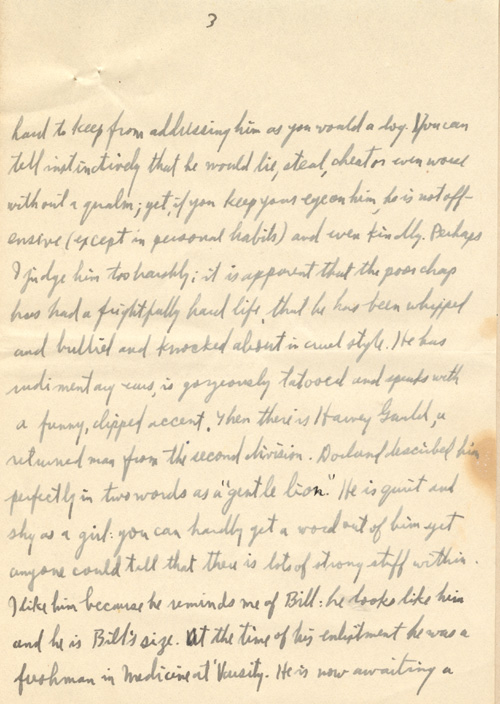 3
hard to keep from addressing him as you would a dog. You can
tell instinctively that he would lie, steal, cheat or even worse
without a qualm; yet, if you keep your eye on him, he is not off-
ensive (except in personal habits) and even kindly. Perhaps
I judge him too harshly; it is apparent that the poor chap
has had a frightfully hard life, that he has been whipped
and bullied and knocked about in cruel style. He has
rudimentary ears, is gorgeously tatooed and speaks with
a funny, clipped accent. Then there is Harvey, a
returned man from the second division. Dorland described him
perfectly in two words as a "gentle lion." He is quiet and
shy as a girl: you can hardly get a word out of him yet
anyone could tell that there is lots of strong stuff within.
I like him because he reminds me of Bill: he looks like him
and he is Bill's size. At the time of his enlistment he was a
freshman in Medicine at 'Varsity. He is now awaiting a